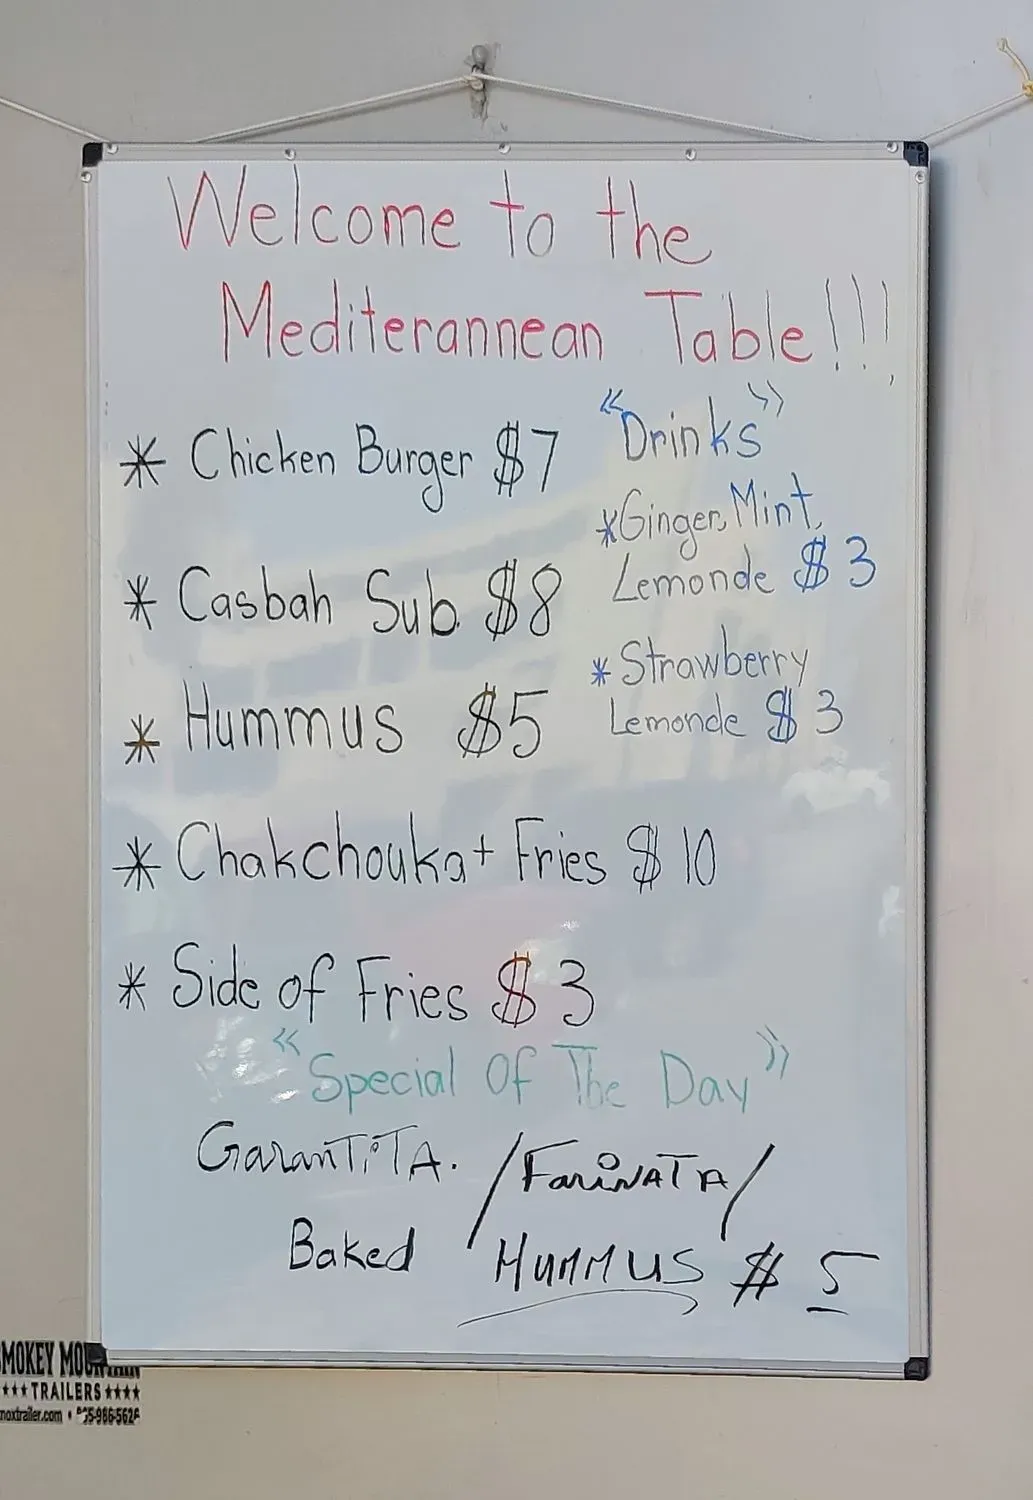 Welcome to the
Mediterannean Table!!!
* Chicken Burger $7
* Casbah Sub $8
* Hummus $5
* Chakchouka + Fries $10
* Side of Fries $3
"Drinks"
* Ginger, Mint,
Lemonde $3
* Strawberry
Lemonde $3
"Special Of The Day"
GaranTiTA. /FariNATA/
Baked HUMMUS $5
MOKEY MOUNTAIN
★★★ TRAILERS ★★★★
noxtrailer.com •